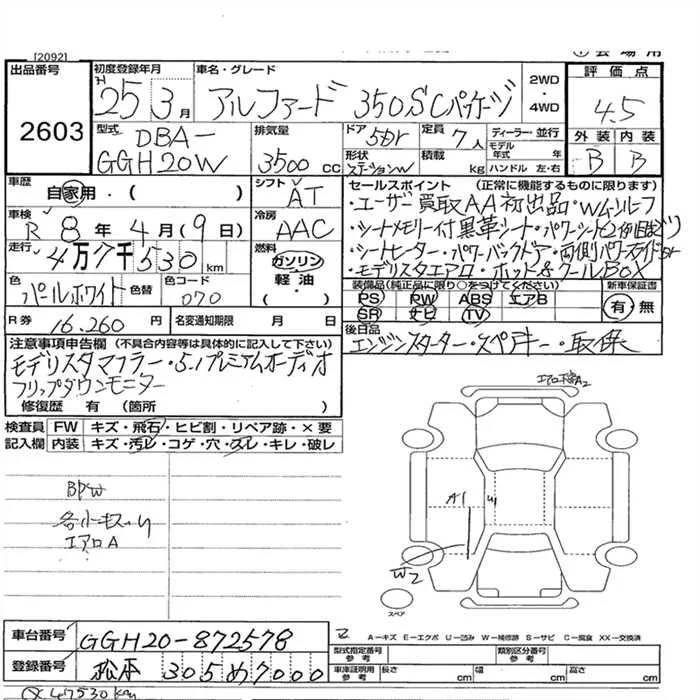 [2092]
出品番号 2603
初度登録年月 H 25 3月
車名・グレード アルファード 350SCパッケージ
2WD・4WD
評価点 4.5
外装 内装
B B
型式 DBA-GGH20W
排気量 3500 CC
ドア 5Dr 定員 7人
形状 ステーションW 積載 kg
ディーラー・並行
モデル年式 年
ハンドル 左・右
車歴 自家用・( )
シフト AT
車検 R 8年 4月(9日)
冷房 AAC
走行 4万7千530km
燃料 ガソリン・軽油・( )
色 パールホワイト 色替 色コード 070
R券 16.260円 名変通知期限 月 日
セールスポイント (正常に機能するものに限ります)
・ユーザー買取AA初出品・Wムーンルーフ
・シートメモリー付黒革シート・パワーシート
・シートヒーター・パワーバックドア・両側パワースライドドア
・モデリスタエアロ・ホット&クールBOX
装備品(純正品に限り○をつけてください) 新車保証書
PS PW ABS エアB 有・無
SR ナビ TV
後日品
エンジンスターター・スペアキー・取保
注意事項申告欄 (不具合内容等は具体的に記入して下さい)
モデリスタマフラー・5.1プレミアムオーディオ
フリップダウンモニター
修復歴 有 (箇所 )
検査員 FW キズ・飛石・ヒビ割・リペア跡・×要
記入欄 内装 キズ・汚レ・コゲ・穴・スレ・キレ・破レ
BPW
各小キズU
エアロA
エアロ下部A2
A1 U1
W2
スペア
車台番号 GGH20-872578
登録番号 松本 305 め 7000
A-キズ E-エクボ U-凹み W-補修跡 S-サビ C-腐食 XX-交換済
型式指定番号 参考 類別区分番号 参考
車庫証明用 参考 長さ cm 幅 cm 高さ cm
47530km